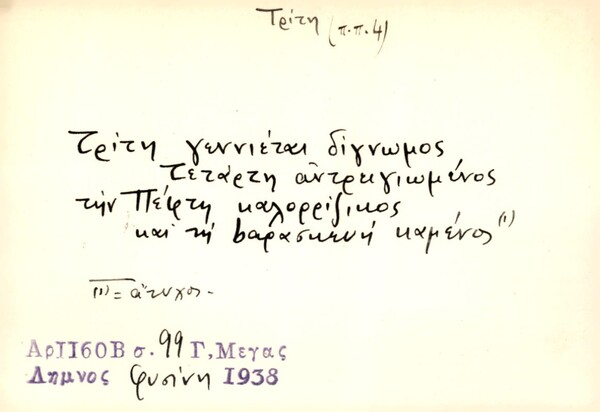 Τρίτη (π.π. 4)
Τρίτη γεννιέται δίγνωμος
Τετάρτη ἀντρειγιωμένος
τὴν Πέφτη καλορρίζικος
καὶ τὴ βαρασκευὴ καμένος (1)
(1) = ἄτυχος -
Αρ1160Β σ. 99 Γ, Μεγας
Λημνος Φυσίνη 1938